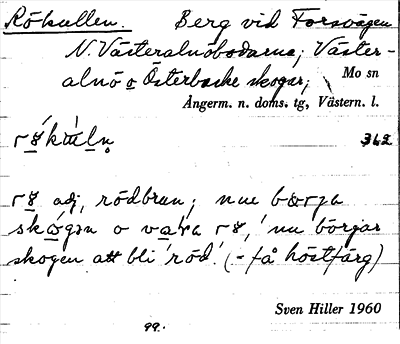 Rökullen. Berg vid Forsvägen
N. Västeralnöbodarna; Väster-
alnö o Österbacke skogar; Mo sn
Ångerm. n. doms. tg, Västern. l.
362
adj, rödbrun; nue börja
skógən o va'ra 'nu börjar
skogen att bli röd'. (- få höstfärg)
Sven Hiller 1960
99.